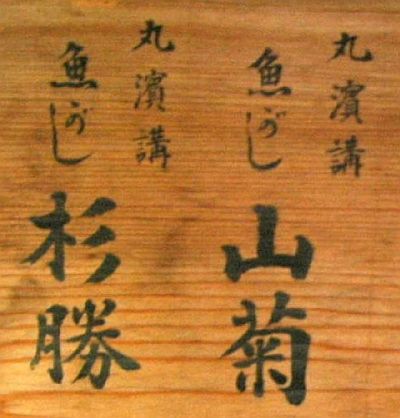 丸濱講
魚がし
山菊
丸濱講
魚がし
杉勝